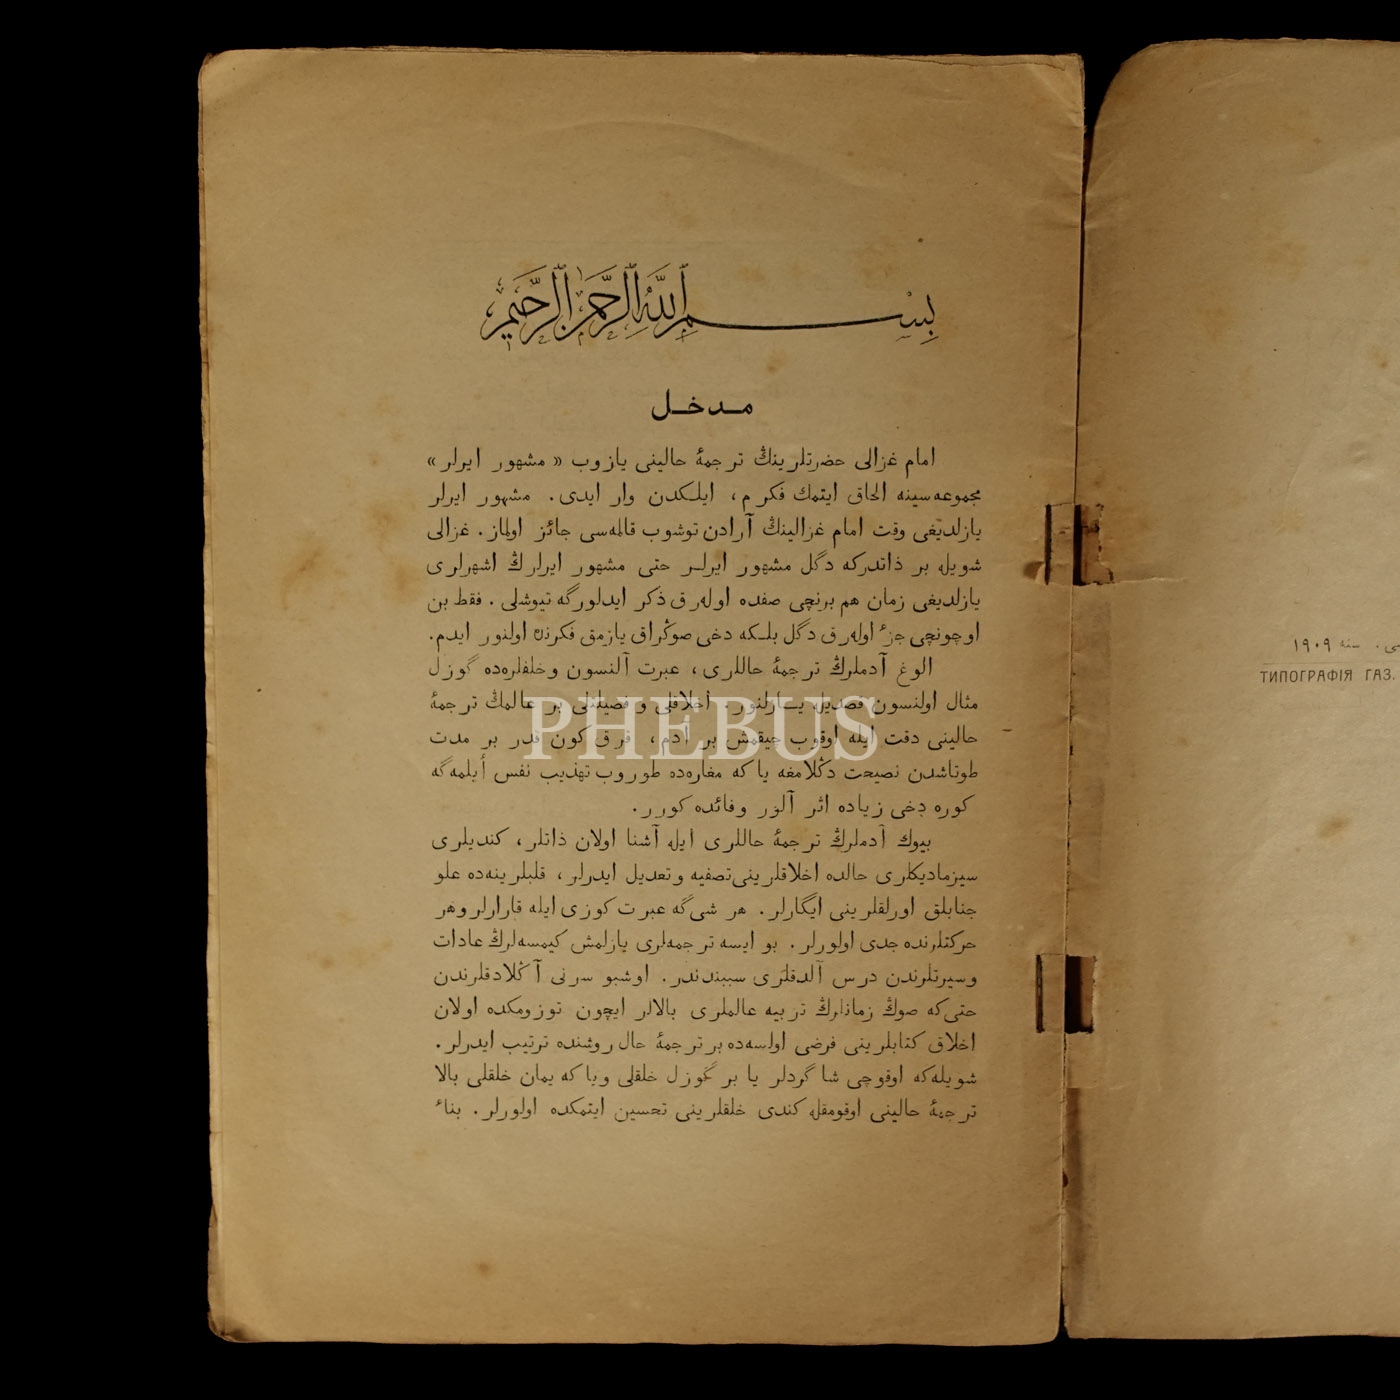 بِسْمِ اللّٰهِ الرَّحْمٰنِ الرَّحِيمِ
مدخل
امام غزالی حضرتلرینڭ ترجمۀ حالینی یازوب « مشهور ایرلر »
مجموعه‌سینه الحاق ایتمك فكرم، ایلكدن وار ایدی. مشهور ایرلر
یازلدیغی وقت امام غزالینڭ آرادن توشوب قالمه‌سی جائز اولماز. غزالی
شویله بر ذاتدركه دگل مشهور ایرلر حتی مشهور ایرلرڭ اشهرلری
یازلدیغی زمان هم برنچی صفده اوله‌رق ذكر ایدلورگه تیوشلی. فقط بن
اوچونچی جزٴ اوله‌رق دگل بلكه دخی صوڭراق یازمق فكرنده اولنور ایدم.
الوغ آدملرڭ ترجمۀ حاللری، عبرت آلنسون وخلفلره‌ده گوزل
مثال اولنسون قصدیله یازلنور. اخلاقلی و فضیلتلی بر عالمڭ ترجمۀ
حالینی دقت ایله اوقوب چیقمش بر آدم، قرق كون قدر بر مدت
طوتاشدن نصیحت دڭلامغه یا كه مغاره‌ده طوروب تهذیب نفس أیلمه‌گه
كوره دخی زیاده اثر آلور وفائده كورر.
بیوك آدملرڭ ترجمۀ حاللری ایله آشنا اولان ذاتلر، كندیلری
سیزمادیكلری حالده اخلاقلرینی تصفیه وتعدیل ایدرلر، قلبلرینه‌ده علو
جنابلق اورلقلرینی ایگارلر. هر شی‌گه عبرت كوزی ایله قارارلر وهر
حركتلرنده جدی اولورلر. بو ایسه ترجمه‌لری یازلمش كیمسه‌لرڭ عادات
وسیرتلرندن درس آلدقلری سببندندر. اوشبو سرنی آڭلادقلرندن
حتی‌كه صوڭ زمانلرڭ تربیه عالملری بالالر ایچون توزومكده اولان
اخلاق كتابلرینی فرضی اولسه‌ده بر ترجمۀ حال روشنده ترتیب ایدرلر.
شویله‌كه اوقوچی شاگردلر یا بر گوزل خلقلی ویا كه یمان خلقلی بالا
ترجمۀ حالینی اوقومقله كندی خلقلرینی تحسین ایتمكده اولورلر. بناءً
PHEBUS
سنه ١٩٠٩
ТИПОГРАФІЯ ГАЗ.